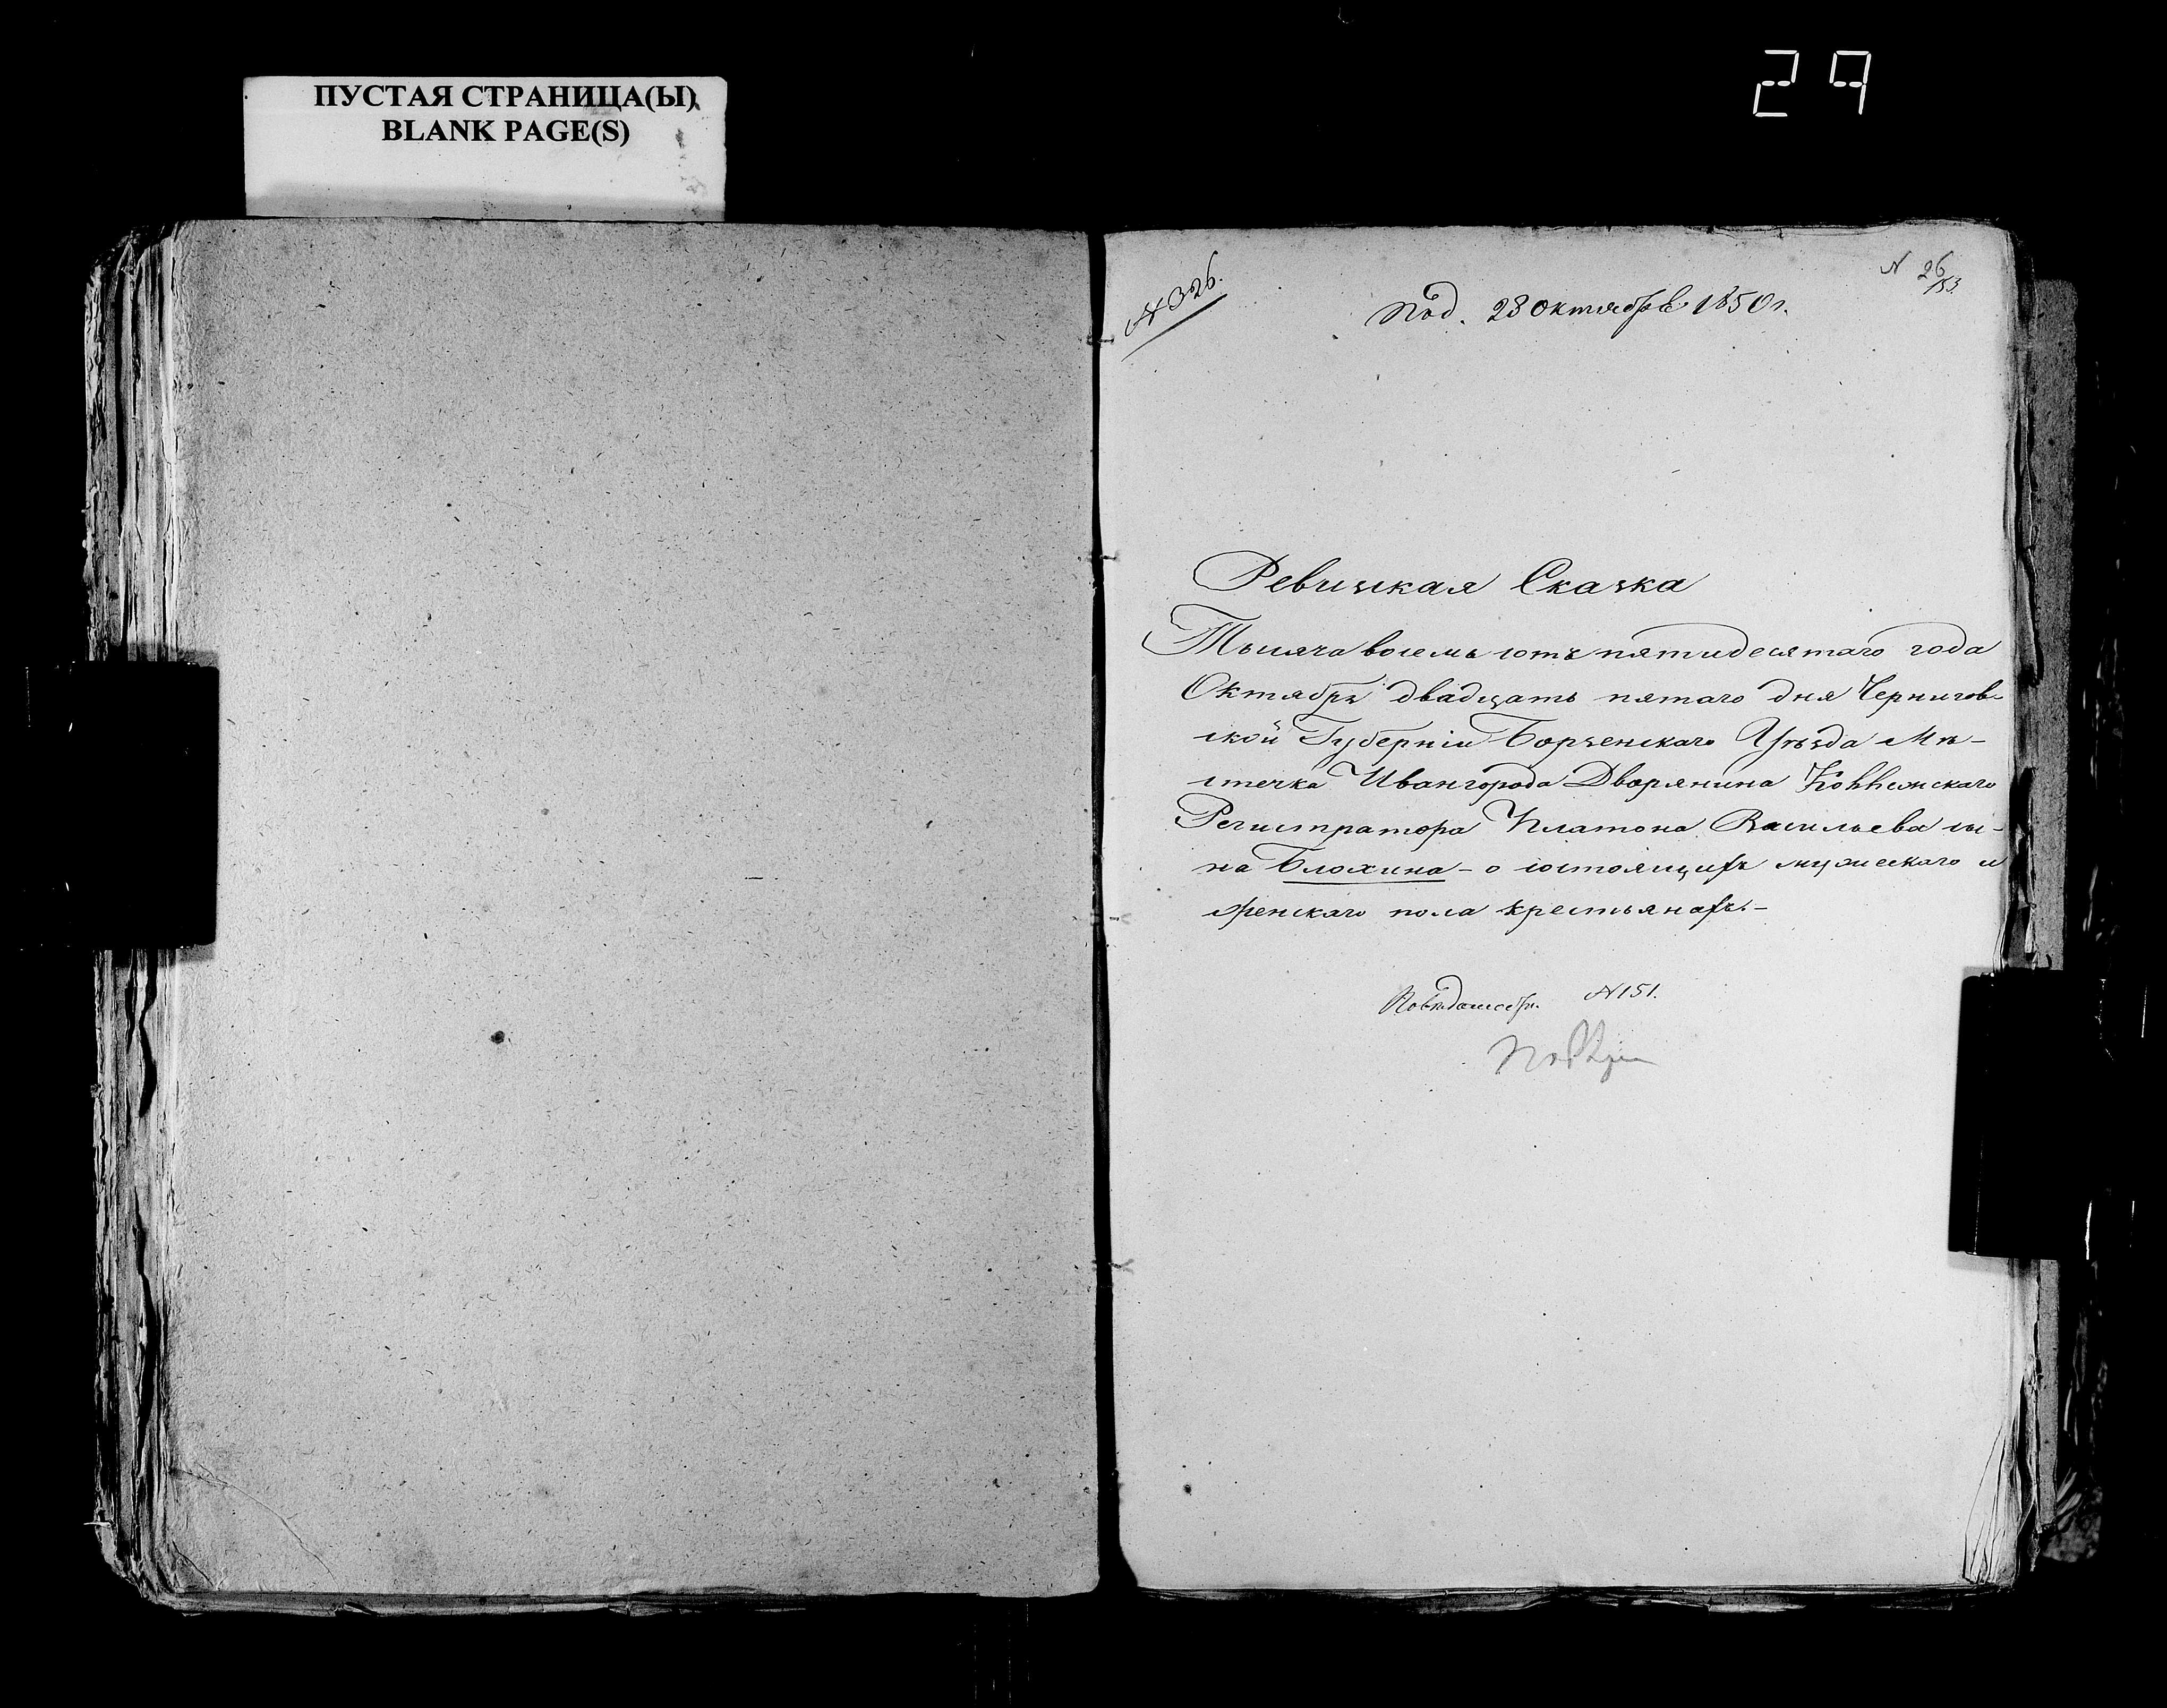 ПУСТАЯ СТРАНИЦА(Ы)
BLANK PAGE(S)
29
№ 326.
N 26/153.
Под. 28 октября 1850 г.
Ревизская Сказка
Тысяча восемь сотъ пятидесятаго года
Октября двадцать пятаго дня Чернигов-
ской Губерніи Борзенскаго Уѣзда Мѣ-
стечка Ивангорода Дворянина Коллежскаго
Регистратора Платона Васильева сы-
на Блохина - о состоящихъ мужескаго и
женскаго пола крестьянахъ. -
№ 151.